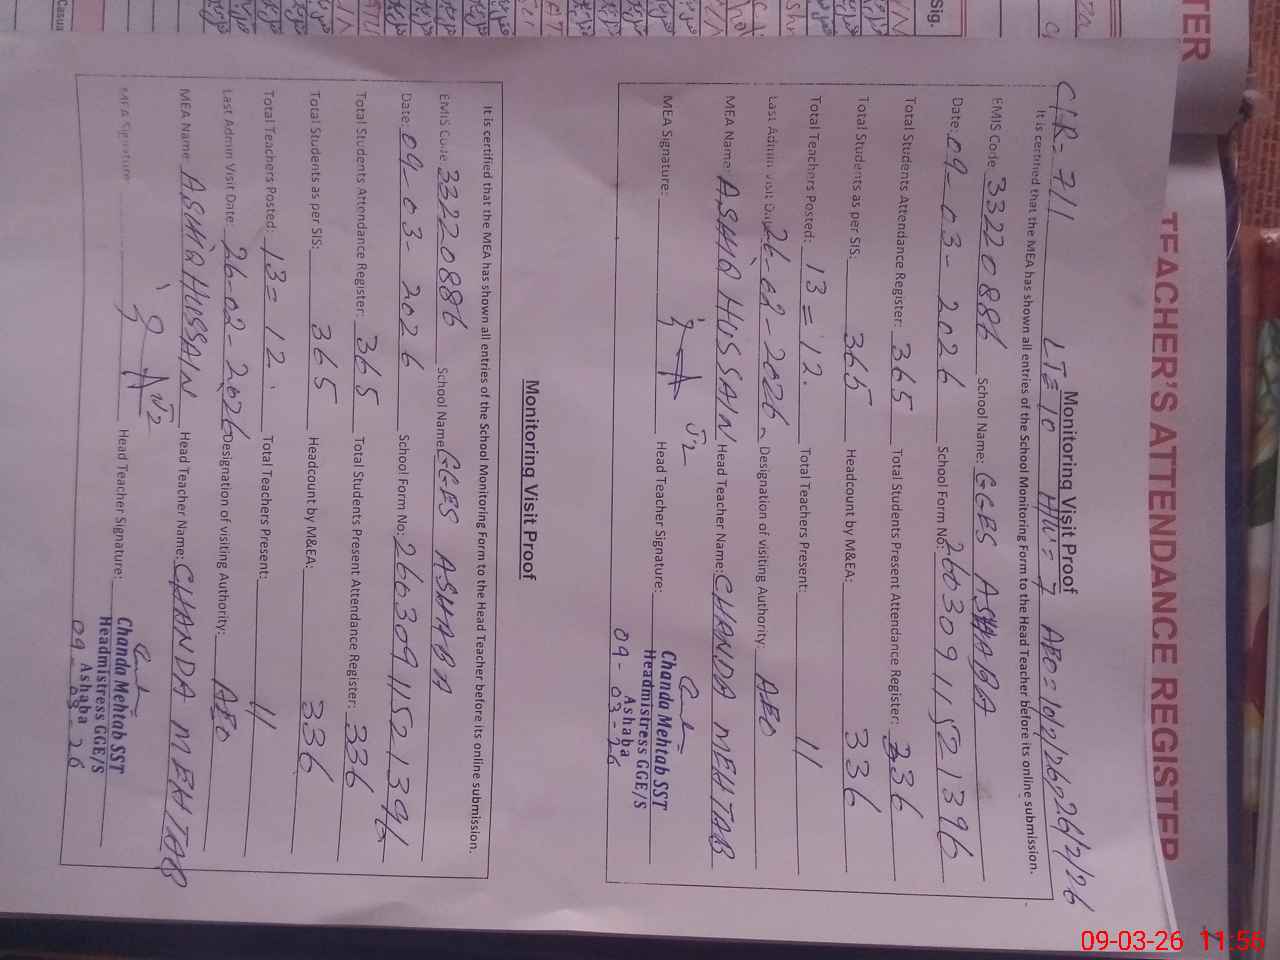 TEACHER'S ATTENDANCE REGISTER
CLR- 711 LTE 10 HW = 7 AEO=
Monitoring Visit Proof
It is certified that the MEA has shown all entries of the School Monitoring Form to the Head Teacher before its online submission.
EMIS Code 33220886 School Name: GGES ASHABA
Date: 09-03-2026 School Form No: 26030911521396
Total Students Attendance Register: 365 Total Students Present Attendance Register: 336
Total Students as per SIS: 365 Headcount by M&EA: 336
Total Teachers Posted: 13 = 12. Total Teachers Present: 11
Last Admin Visit Date 26-02-2026 Designation of visiting Authority: AEO
MEA Name: ASHIQ HUSSAIN Head Teacher Name: CHANDA MEHTAB
MEA Signature: Head Teacher Signature:
Chanda Mehtab SST
Headmistress GGE/S
Ashaba
09-03-26
Monitoring Visit Proof
It is certified that the MEA has shown all entries of the School Monitoring Form to the Head Teacher before its online submission.
EMIS Code 33220886 School Name GGES ASHABA
Date: 09-03-2026 School Form No: 26030911521396
Total Students Attendance Register: 365 Total Students Present Attendance Register: 336
Total Students as per SIS: 365 Headcount by M&EA: 336
Total Teachers Posted: 13 = 12. Total Teachers Present: 11
Last Admin Visit Date: 26-02-2026 Designation of visiting Authority: AEO
MEA Name: ASHIQ HUSSAIN Head Teacher Name: CHANDA MEHTAB
MEA Signature: Head Teacher Signature:
Chanda Mehtab SST
Headmistress GGE/S
Ashaba
09-03-26
Sig.
Casua
TER
09-03-26 11:56